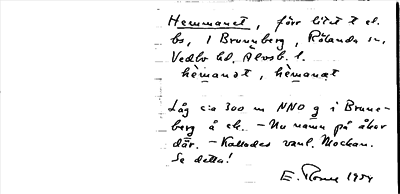 Hemmanet, förr litet t el.
bs, i Brunnberg, Rölanda sn,
Vedbo hd, Älvsb. l.
hèmanət, hèmanat
Låg c:a 300 m NNO g i Brunn-
berg å ek. - Nu namn på åker
där. - Kallades vanl. Mochan.
Se detta!
E. 1954